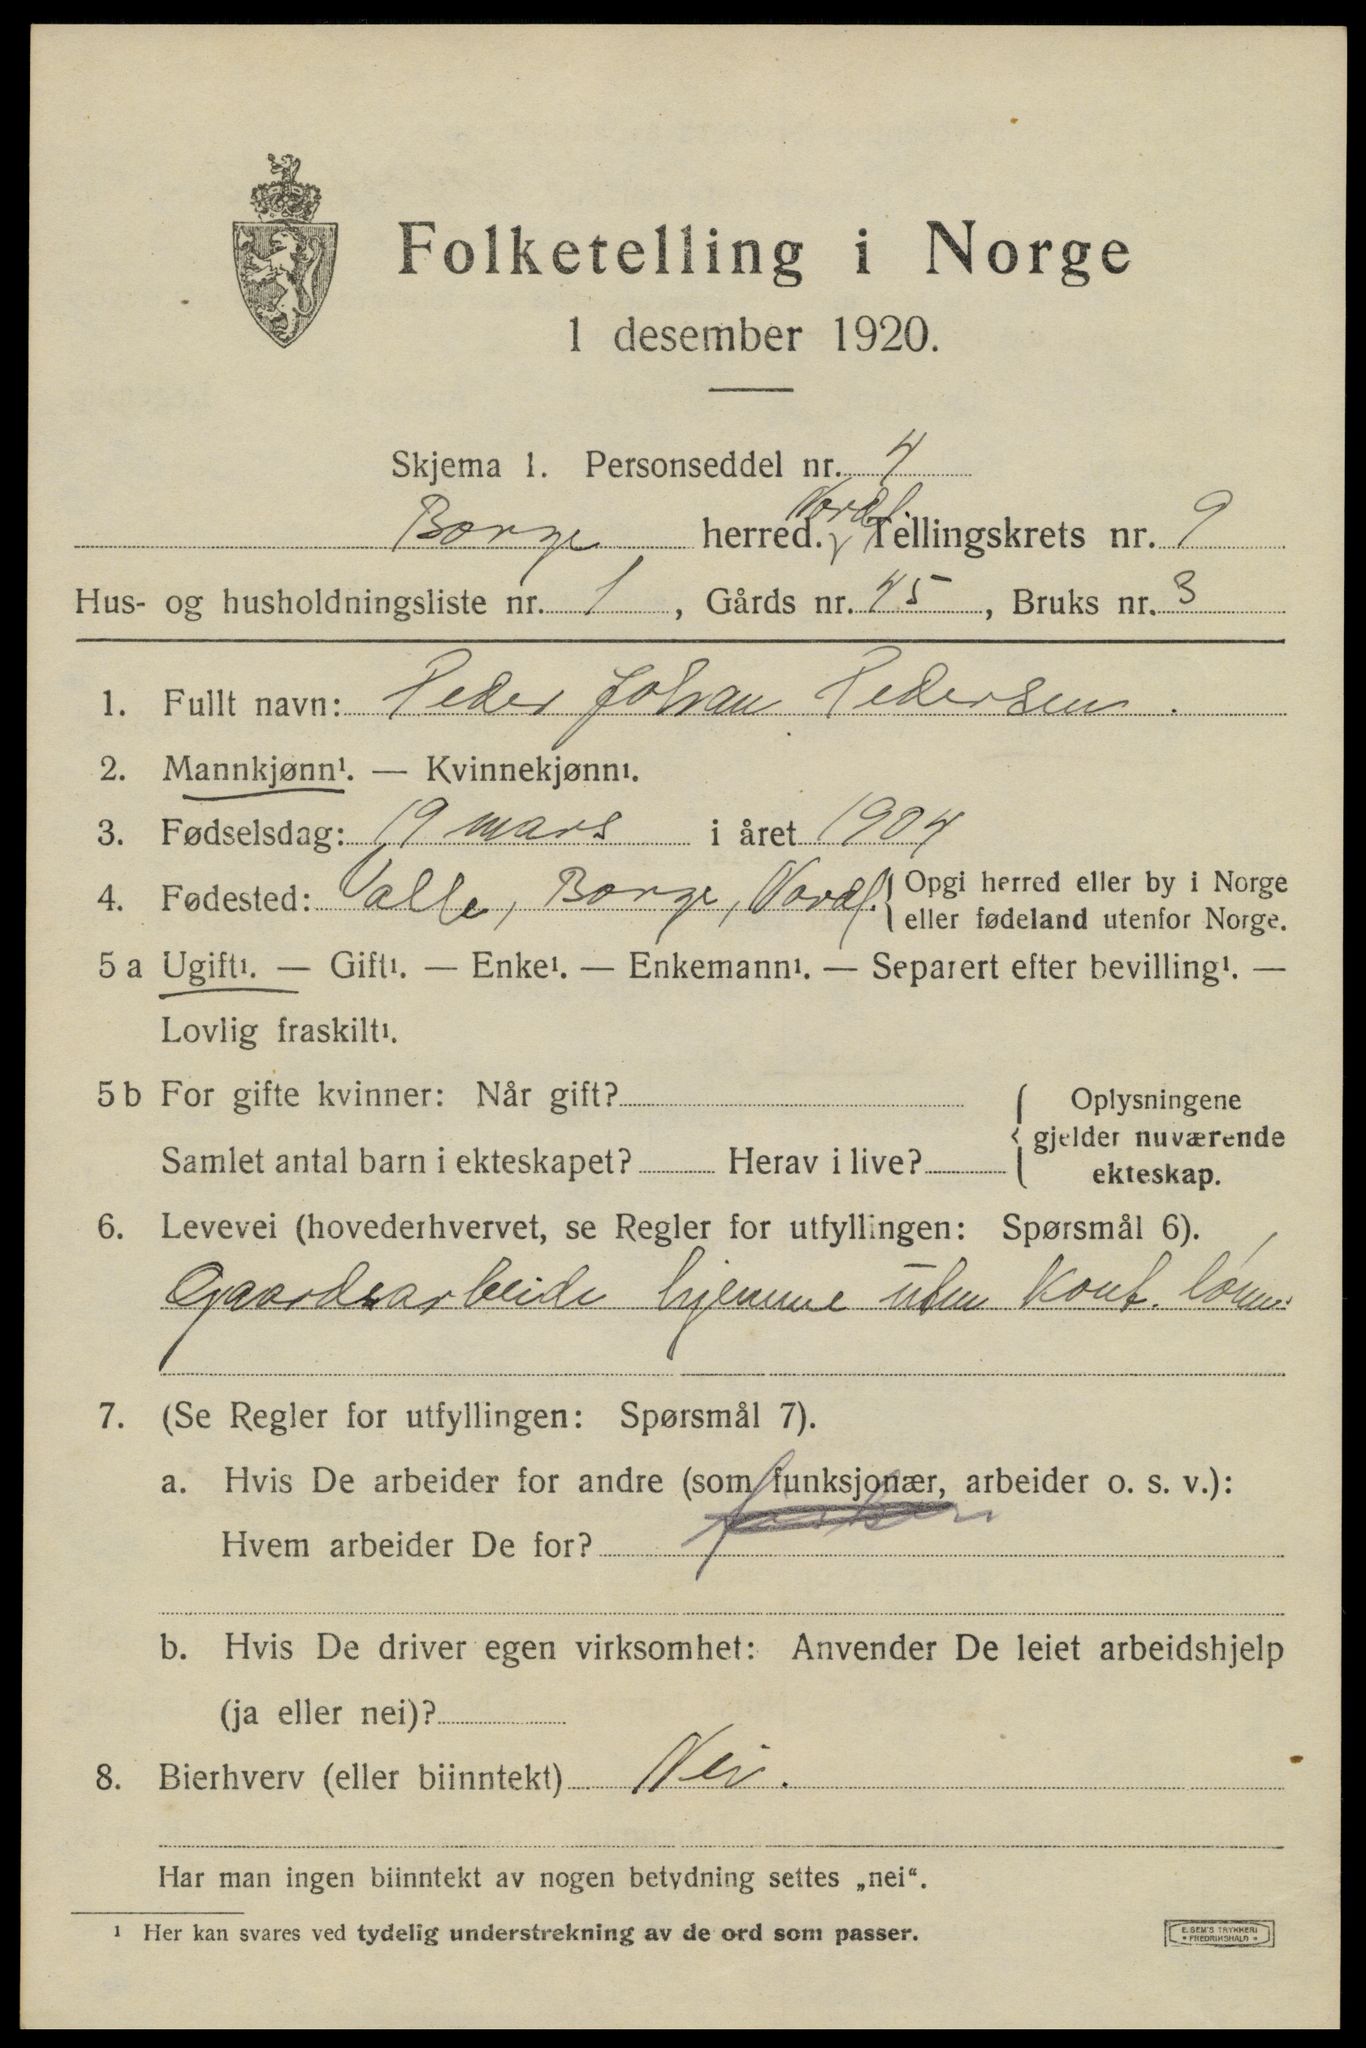 Folketelling i Norge
1 desember 1920.
Skjema 1. Personseddel nr. 4
Borge herred. Nordl. Tellingskrets nr. 9
Hus- og husholdningsliste nr. 1, Gårds nr. 45, Bruks nr. 3
1. Fullt navn: Peder Johan Pedersen.
2. Mannkjønn¹. — Kvinnekjønn¹.
3. Fødselsdag: 19 mars i året 1904
4. Fødested: Valle, Borge, Nordl. { Opgi herred eller by i Norge
eller fødeland utenfor Norge.
5 a Ugift¹. — Gift¹. — Enke¹. — Enkemann¹. — Separert efter bevilling¹. —
Lovlig fraskilt¹.
5 b For gifte kvinner: Når gift?
Samlet antal barn i ekteskapet? Herav i live?
{ Oplysningene
gjelder nuværende
ekteskap.
6. Levevei (hovederhvervet, se Regler for utfyllingen: Spørsmål 6).
Gaardsarbeide hjemme uten kont. lønn
7. (Se Regler for utfyllingen: Spørsmål 7).
a. Hvis De arbeider for andre (som funksjonær, arbeider o. s. v.):
Hvem arbeider De for?
b. Hvis De driver egen virksomhet: Anvender De leiet arbeidshjelp
(ja eller nei)?
8. Bierhverv (eller biinntekt) Nei.
Har man ingen biinntekt av nogen betydning settes „nei“.
¹ Her kan svares ved tydelig understrekning av de ord som passer.
E. SEM'S TRYKKERI
FREDRIKSHALD